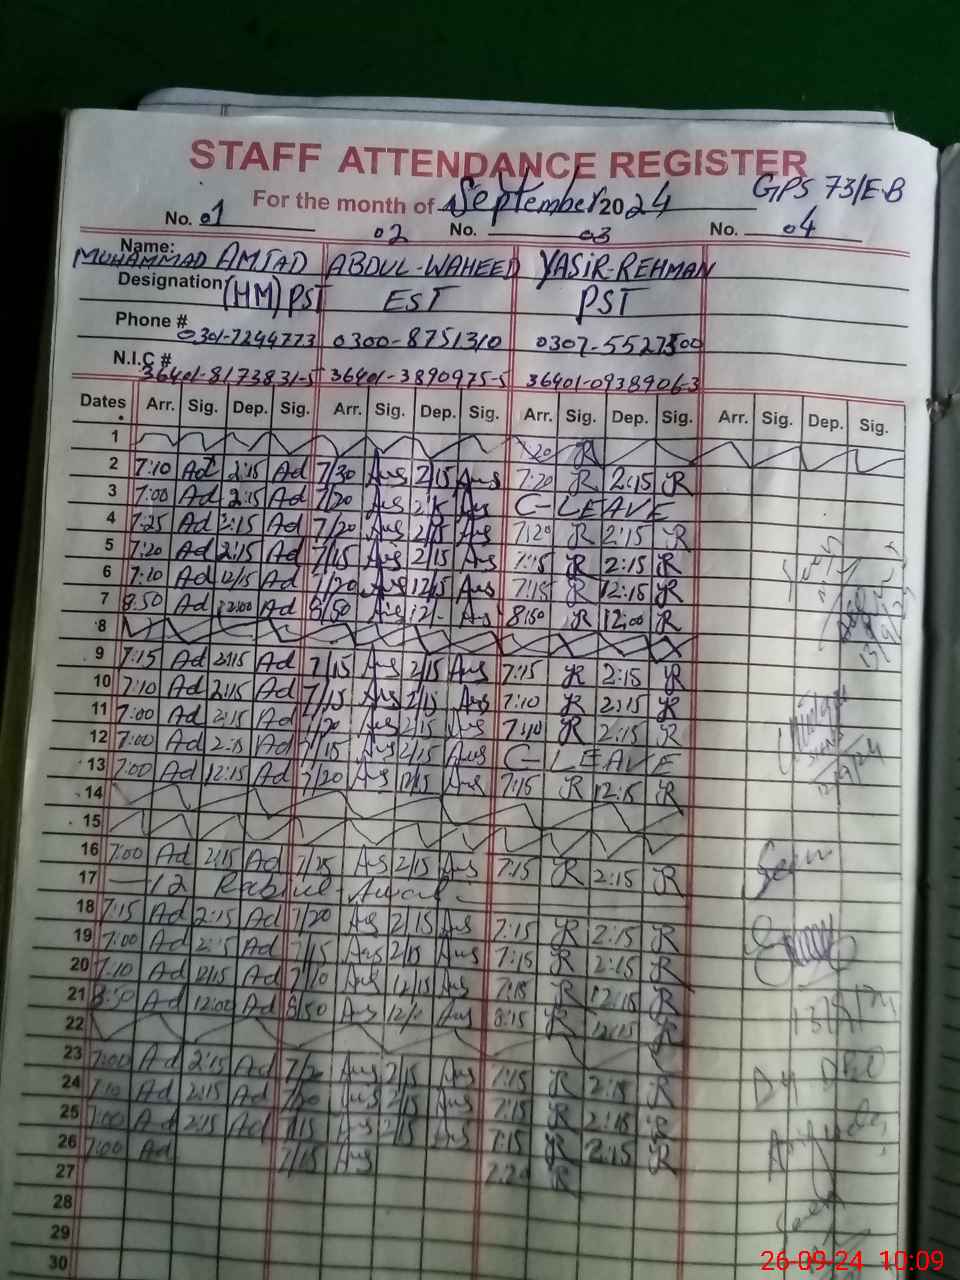 STAFF ATTENDANCE REGISTER
For the month of September 2024 GPS 73/E-B
No. 01 02 No. 03 No. 04
Name: MUHAMMAD AMJAD ABDUL-WAHEED YASIR-REHMAN
Designation (HM) PST EST PST
Phone # 0301-7244773 0300-8751310 0307-5527300
N.I.C # 36401-8173831-5 36401-3890975-5 36401-0938906-3
Dates Arr. Sig. Dep. Sig. Arr. Sig. Dep. Sig. Arr. Sig. Dep. Sig. Arr. Sig. Dep. Sig.
1 7:20 R
2 7:10 Ad 2:15 Ad 7/30 Aus 2/15 Aus 7:20 R 2:15 R
3 7:00 Ad 2:15 Ad 7/20 Aus 2/15 Aus C-LEAVE
4 7:25 Ad 2:15 Ad 7/20 Aus 2/15 Aus 7:20 R 2:15 R
5 7:20 Ad 2:15 Ad 7/15 Aus 2/15 Aus 7:15 R 2:15 R
6 7:10 Ad 12/15 Ad 7/20 Aus 12/15 Aus 7:15 R 12:15 R
7 8:50 Ad 12:00 Ad 8/50 Aus 12/- Aus 8:50 R 12:00 R
8
9 7:15 Ad 2:15 Ad 7/15 Aus 2/15 Aus 7:15 R 2:15 R
10 7:10 Ad 2:15 Ad 7/15 Aus 2/15 Aus 7:10 R 2:15 R
11 7:00 Ad 2:15 Ad 7/20 Aus 2/15 Aus 7:10 R 2:15 R
12 7:00 Ad 2:15 Ad 7/15 Aus 2/15 Aus C-LEAVE
13 7:00 Ad 12:15 Ad 7/20 Aus 12/15 Aus 7:15 R 12:15 R
14
15
16 7:00 Ad 2:15 Ad 7/25 Aus 2/15 Aus 7:15 R 2:15 R
17 12 Rabiul-Awal
18 7:15 Ad 2:15 Ad 7/20 Aus 2/15 Aus 7:15 R 2:15 R
19 7:00 Ad 2:15 Ad 7/15 Aus 2/15 Aus 7:15 R 2:15 R
20 7:10 Ad 12/15 Ad 7/10 Aus 12/15 Aus 7:15 R 12:15 R
21 8:50 Ad 12:00 Ad 8/50 Aus 12/- Aus 8:15 R 12:15 R
22
23 7:00 Ad 2:15 Ad 7/20 Aus 2/15 Aus 7:15 R 2:15 R
24 7:10 Ad 2:15 Ad 7/20 Aus 2/15 Aus 7:15 R 2:15 R
25 7:00 Ad 2:15 Ad 7/15 Aus 2/15 Aus 7:15 R 2:15 R
26 7:00 Ad 7/15 Aus 7:20 R
27
28
29
30
Seen
26-09-24 10:09